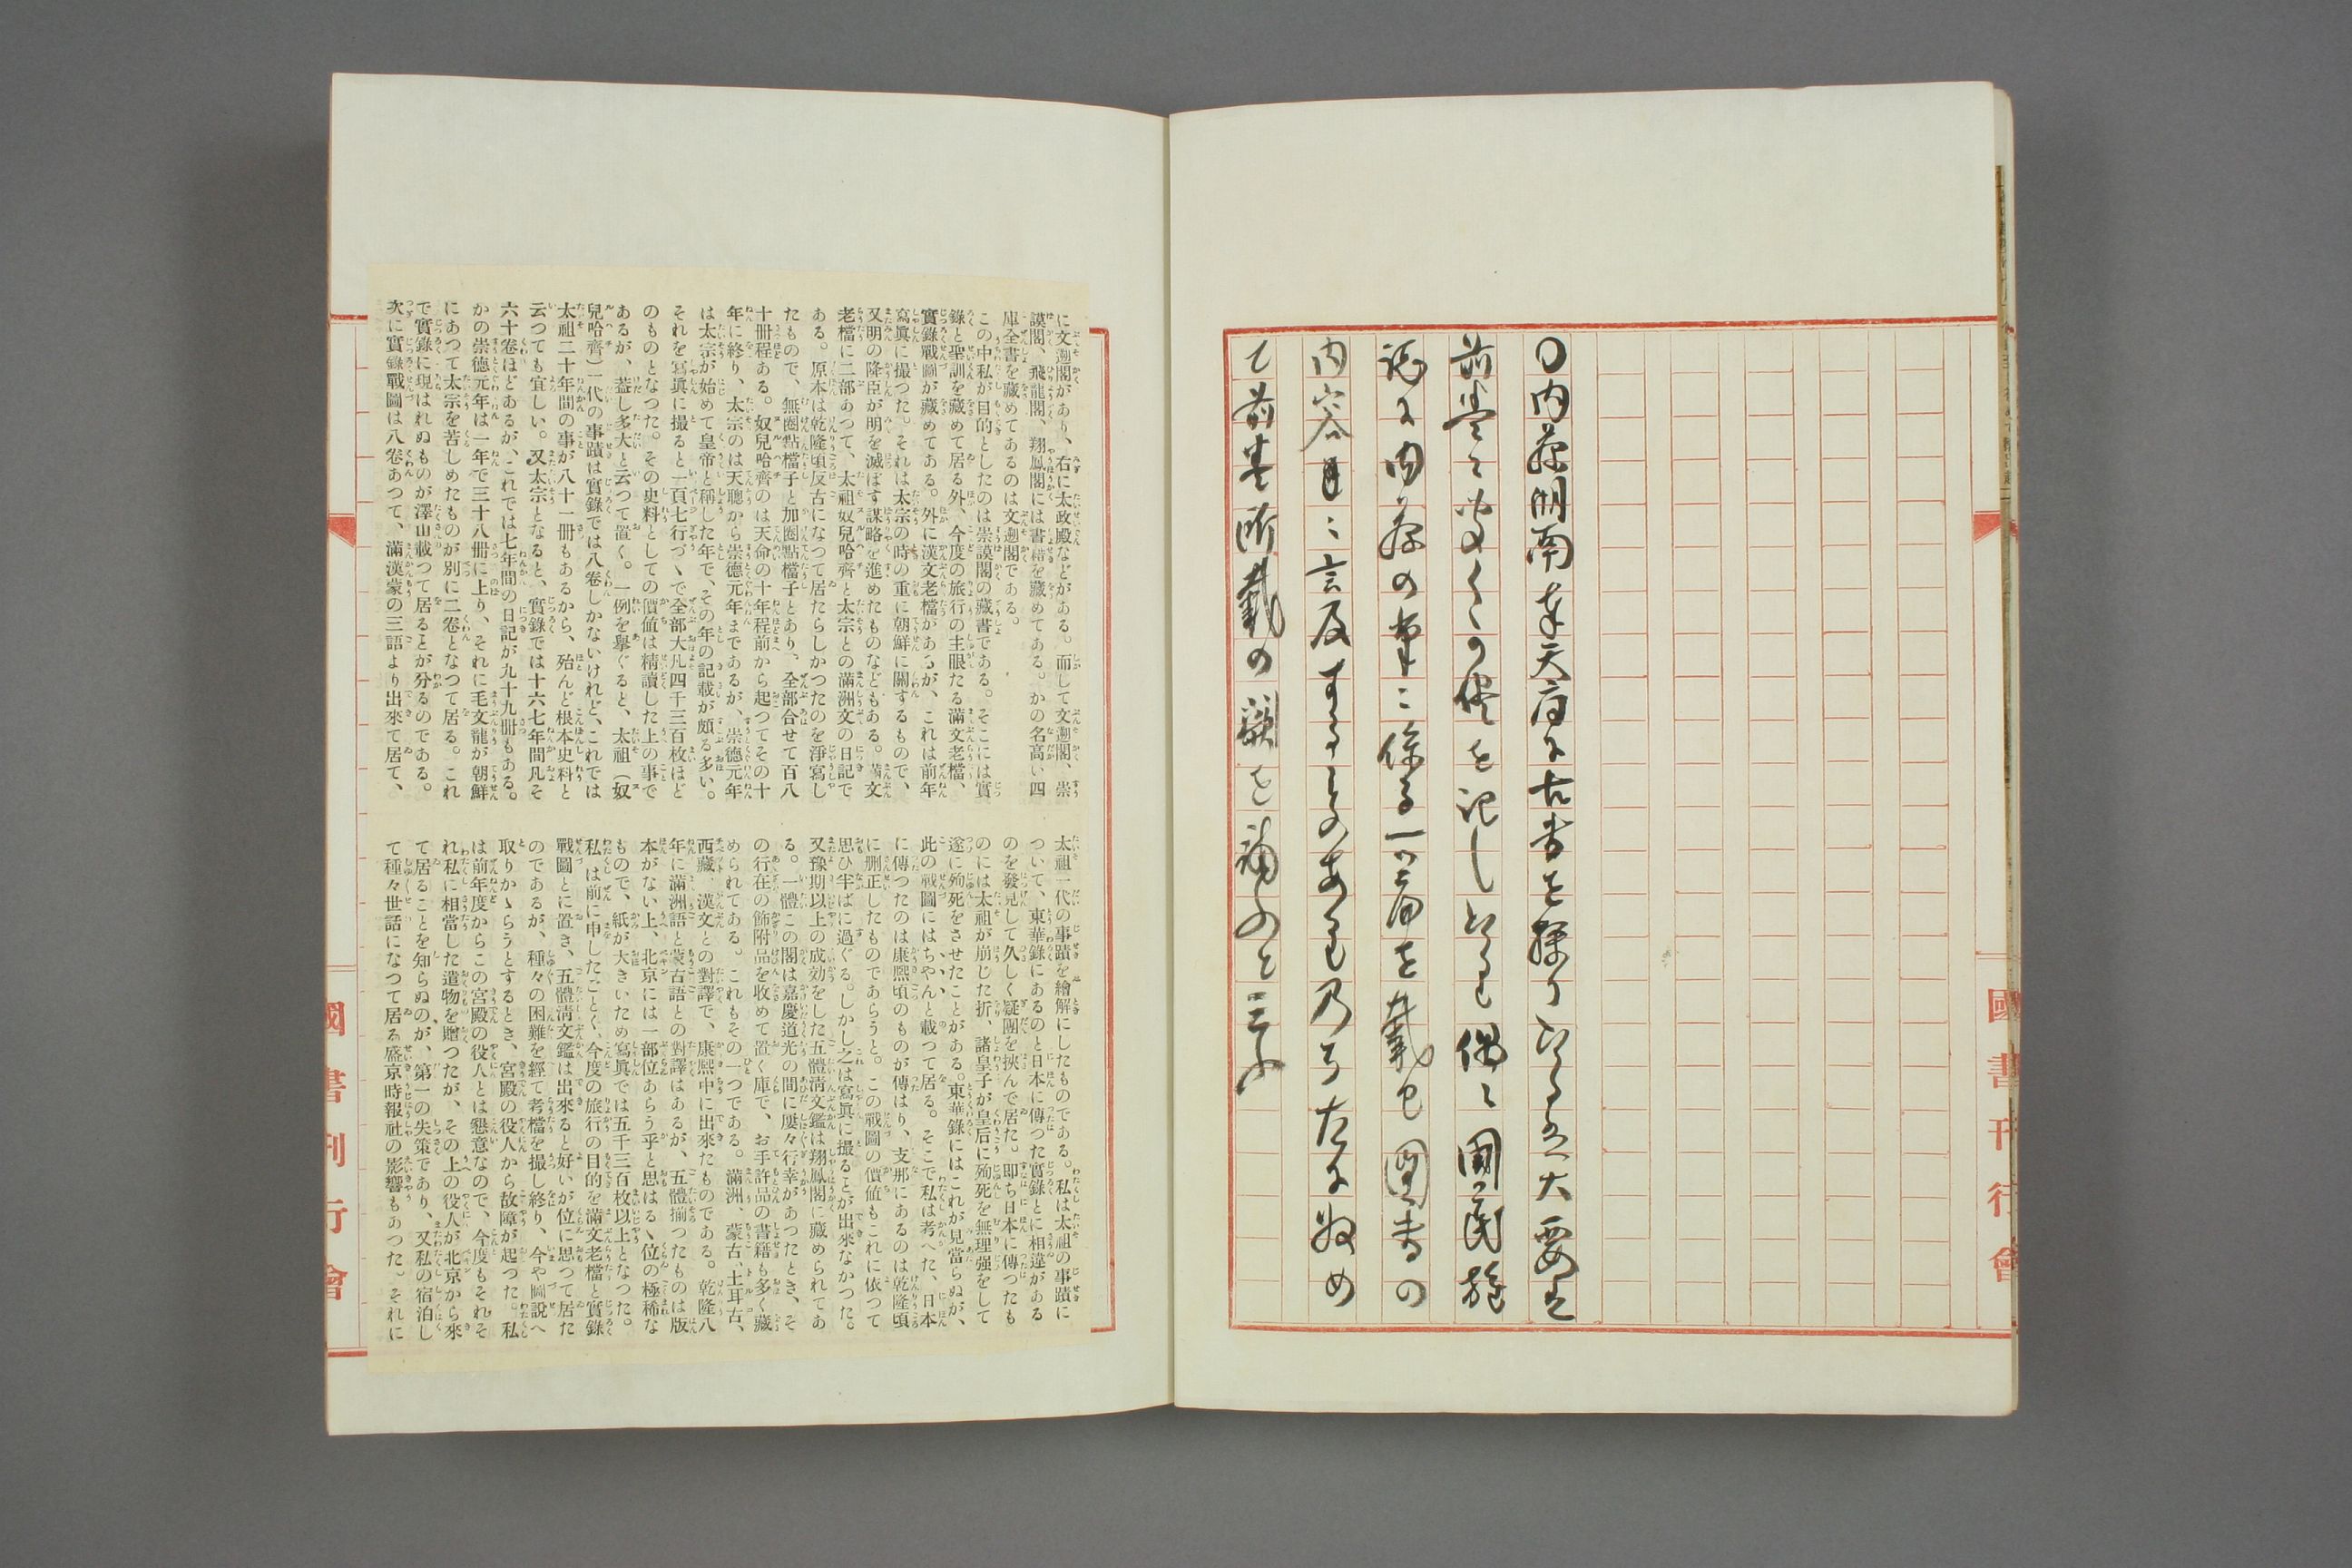 〇内藤湖南奉天府に古書を探りたる大要は
前巻に
記し
偶に国民雑
誌に内藤の筆に係る一文
を載せ図書の
内容に言及する
あるも乃ち左に
て前巻所載の闕を補ふと云ふ
國書刊行會
に文溯閣があり、右に太政殿などがある。而して文溯閣、崇
謨閣、飛龍閣、翔鳳閣には書籍を藏めてある。かの名高い四
庫全書を藏めてあるのは文溯閣である。
この中私が目的としたのは崇謨閣の藏書である。そこには實
錄と聖訓を藏めて居る外、今度の旅行の主眼たる滿文老檔、
實錄戰圖が藏めてある。外に漢文老檔があるが、これは前年
寫眞に撮つた。それは太宗の時の重に朝鮮に關するもので、
又明の降臣が明を滅ぼす謀略を進めたものなどもある。滿文
老檔に二部あつて、太祖奴兒哈齊と太宗との滿洲文の日記で
ある。原本は乾隆頃反古になつて居たらしかつたのを淨寫し
たもので、無圈點檔子と加圈點檔子とあり、全部合せて百八
十冊程ある。奴兒哈齊のは天命の十年程前から起つてその十
年に終り、太宗のは天聰から崇德元年まであるが、崇德元年
は太宗が始めて皇帝と稱した年で、その年の記載が頗る多い。
それを寫眞に撮ると一頁七行づゝで全部大凡四千三百枚ほど
のものとなつた。その史料としての價値は精讀した上の事で
あるが、蓋し多大と云つて置く。一例を擧ぐると、太祖（奴
兒哈齊）一代の事蹟は實錄では八卷しかないけれど、これでは
太祖二十年間の事が八十一冊もあるから、殆んど根本史料と
云つても宜しい。又太宗となると、實錄では十六七年間凡そ
六十卷ほどあるが、これでは七年間の日記が九十九冊もある。
かの崇德元年は一年で三十八冊に上り、それに毛文龍が朝鮮
にあつて太宗を苦しめたものが別に二卷となつて居る。これ
で實錄に現はれぬものが澤山載つて居ることが分るのである。
次に實錄戰圖は八卷あつて、滿漢蒙の三語より出來て居て、
太祖一代の事蹟を繪解にしたものである。私は太祖の事蹟に
ついて、東華錄にあるのと日本に傳つた實錄とに相違がある
のを發見して久しく疑團を挾んで居た。即ち日本に傳つたも
のには太祖が崩じた折、諸皇子が皇后に殉死を無理强をして
遂に殉死をさせたことがある。東華錄にはこれが見當らぬが、
此の戰圖にはちやんと載つて居る。そこで私は考へた、日本
に傳つたのは康熙頃のものが傳はり、支那にあるのは乾隆頃
に刪正したものであらうと。この戰圖の價値もこれに依つて
思ひ半ばに過ぐる。しかし之は寫眞に撮ることが出來なかつた。
又豫期以上の成効をした五體淸文鑑は翔鳳閣に藏められてあ
る。一體この閣は嘉慶道光の間に屢々行幸があつたとき、そ
の行在の飾附品を收めて置く庫で、お手許品の書籍も多く藏
められてある。これもその一つである。滿洲、蒙古、土耳古、
西藏、漢文との對譯で、康熙中に出來たものである。乾隆八
年に滿洲語と蒙古語との對譯はあるが、五體揃つたものは版
本がない上、北京には一部位あらう乎と思はるゝ位の極稀な
もので、紙が大きいため寫眞では五千三百枚以上となつた。
私は前に申したごとく、今度の旅行の目的を滿文老檔と實錄
戰圖とに置き、五體淸文鑑は出來ると好いが位に思つて居た
のであるが、種々の困難を經て老檔を撮し終り、今や圖說へ
取りかゝらうとするとき、宮殿の役人から故障が起つた。私
は前年度からこの宮殿の役人とは懇意なので、今度もそれぞ
れ私に相當した遣物を贈つたが、その上の役人が北京から來
て居ることを知らぬのが、第一の失策であり、又私の宿泊し
て種々世話になつて居る盛京時報社の影響もあつた。それに
國書刊行會